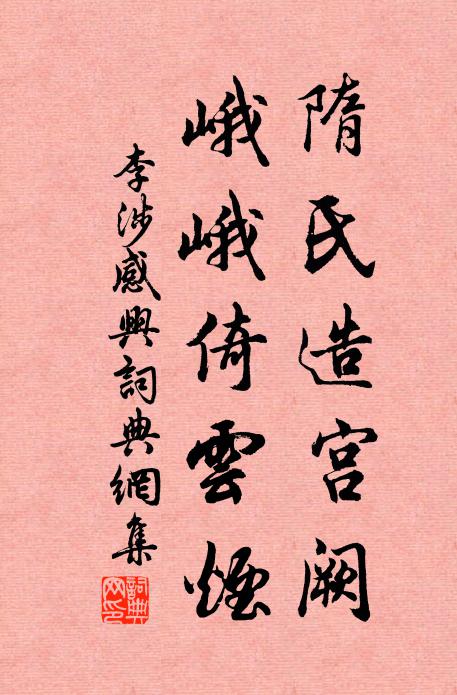 隋氏造宮闕
峨峨倚雲煙
李涉感興詞典網集
詞典网印